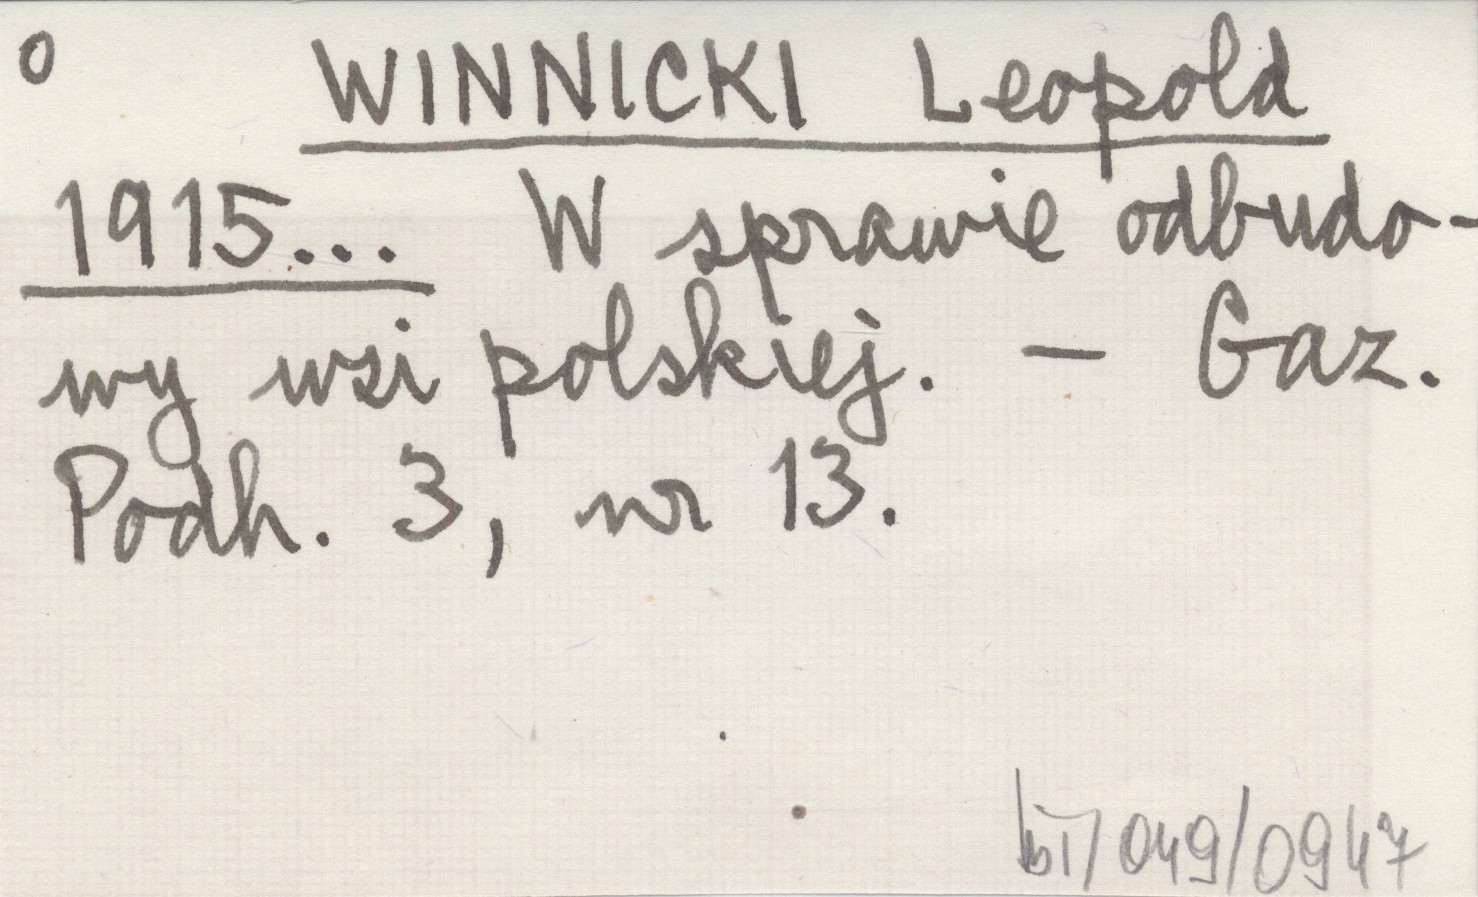 o WINNICKI Leopold
1915... W sprawie odbudo-
wy wsi polskiej. — Gaz.
Podh. 3, nr 13.
bi/049/0947